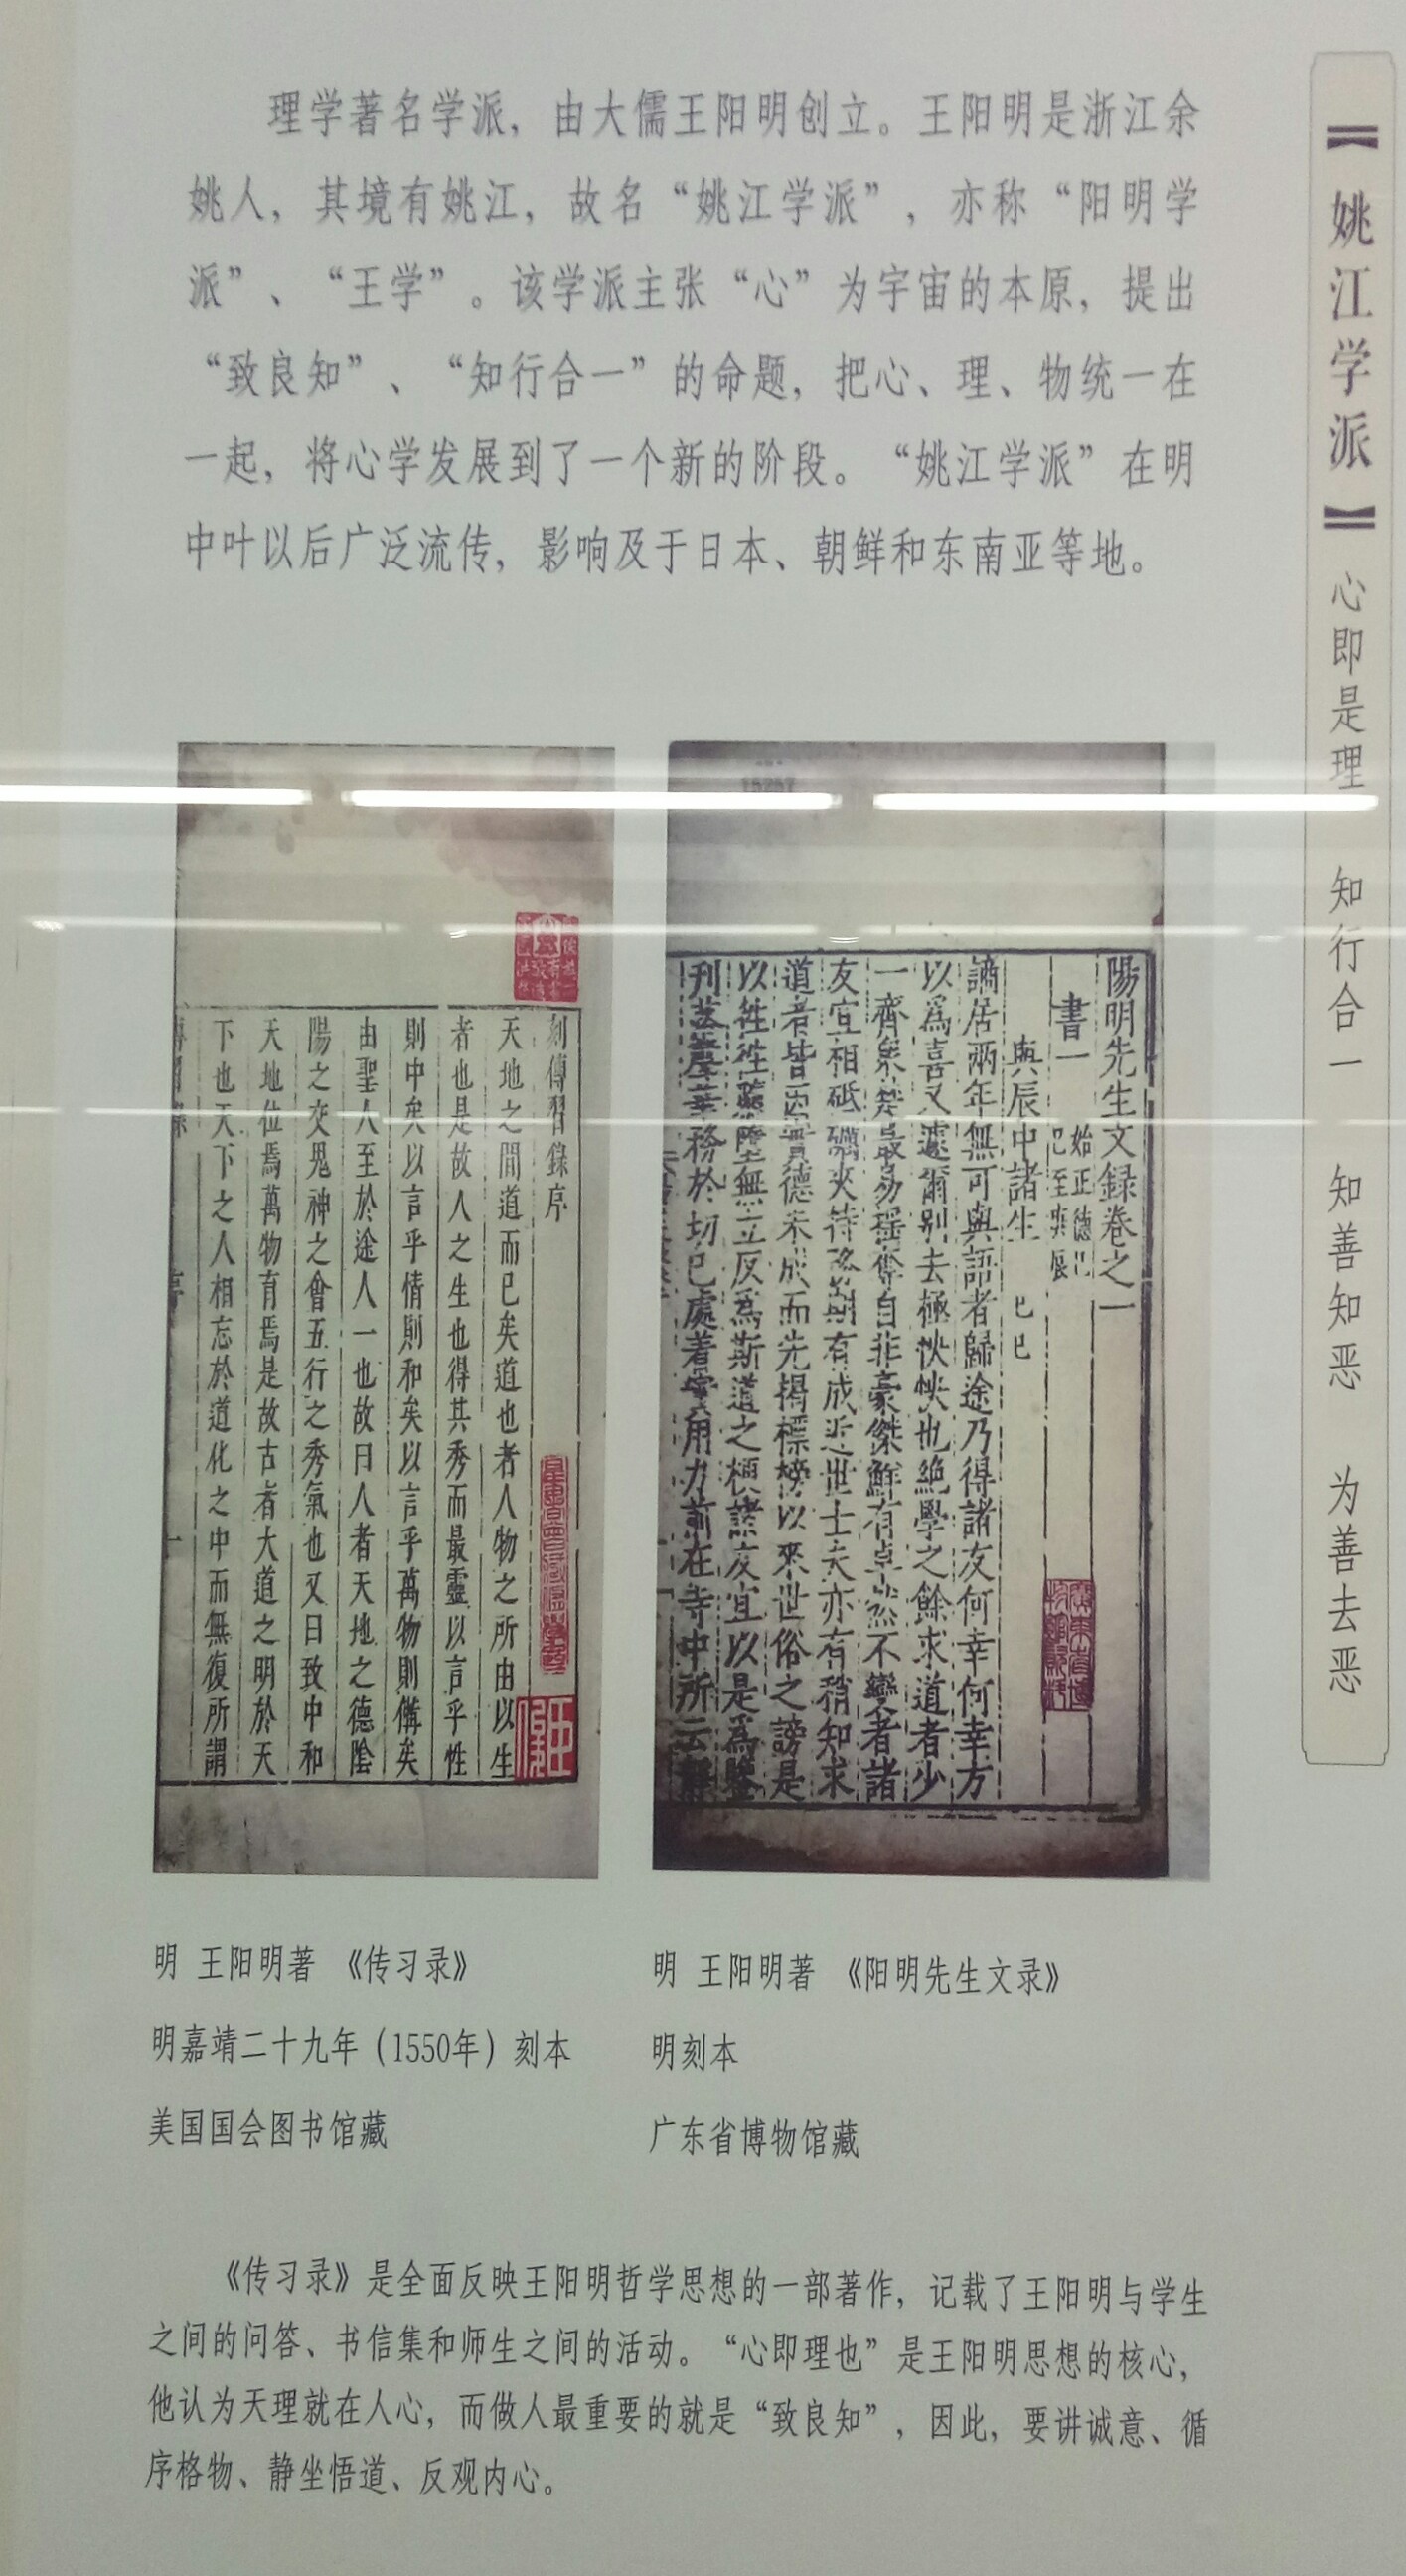 理学著名学派，由大儒王阳明创立。王阳明是浙江余
姚人，其境有姚江，故名“姚江学派”，亦称“阳明学
派”、“王学”。该学派主张“心”为宇宙的本原，提出
“致良知”、“知行合一”的命题，把心、理、物统一在
一起，将心学发展到了一个新的阶段。“姚江学派”在明
中叶以后广泛流传，影响及于日本、朝鲜和东南亚等地。
【姚江学派】心即是理 知行合一 知善知恶 为善去恶
刻傳習錄序
天地之間道而已矣道也者人物之所由以生
者也是故人之生也得其秀而最靈以言乎性
則中矣以言乎情則和矣以言乎萬物則備矣
由聖人至於途人一也故曰人者天地之德陰
陽之交鬼神之會五行之秀氣也又曰致中和
天地位焉萬物育焉是故古者大道之明於天
下也天下之人相忘於道化之中而無復所謂
陽明先生文録卷之一
書一
始正德己
巳至庚辰
與辰中諸生 己巳
謫居兩年無可與語者歸途乃得諸友何幸何幸方
以為喜又遽爾別去極怏怏也絕學之餘求道者少
一齊衆楚最易搖奪自非豪傑鮮有卓然不變者諸
友宜相砥礪夾持務期有成近世士夫亦有稍知求
道者皆因實德未成而先揭標榜以來世俗之謗是
以往往隳墮無立反為斯道之梗諸友宜以是為鑒
刊落聲華務於切己處着實用力前在寺中所云靜
明 王阳明著 《传习录》
明嘉靖二十九年（1550年）刻本
美国国会图书馆藏
明 王阳明著 《阳明先生文录》
明刻本
广东省博物馆藏
《传习录》是全面反映王阳明哲学思想的一部著作，记载了王阳明与学生
之间的问答、书信集和师生之间的活动。“心即理也”是王阳明思想的核心，
他认为天理就在人心，而做人最重要的就是“致良知”，因此，要讲诚意、循
序格物、静坐悟道、反观内心。